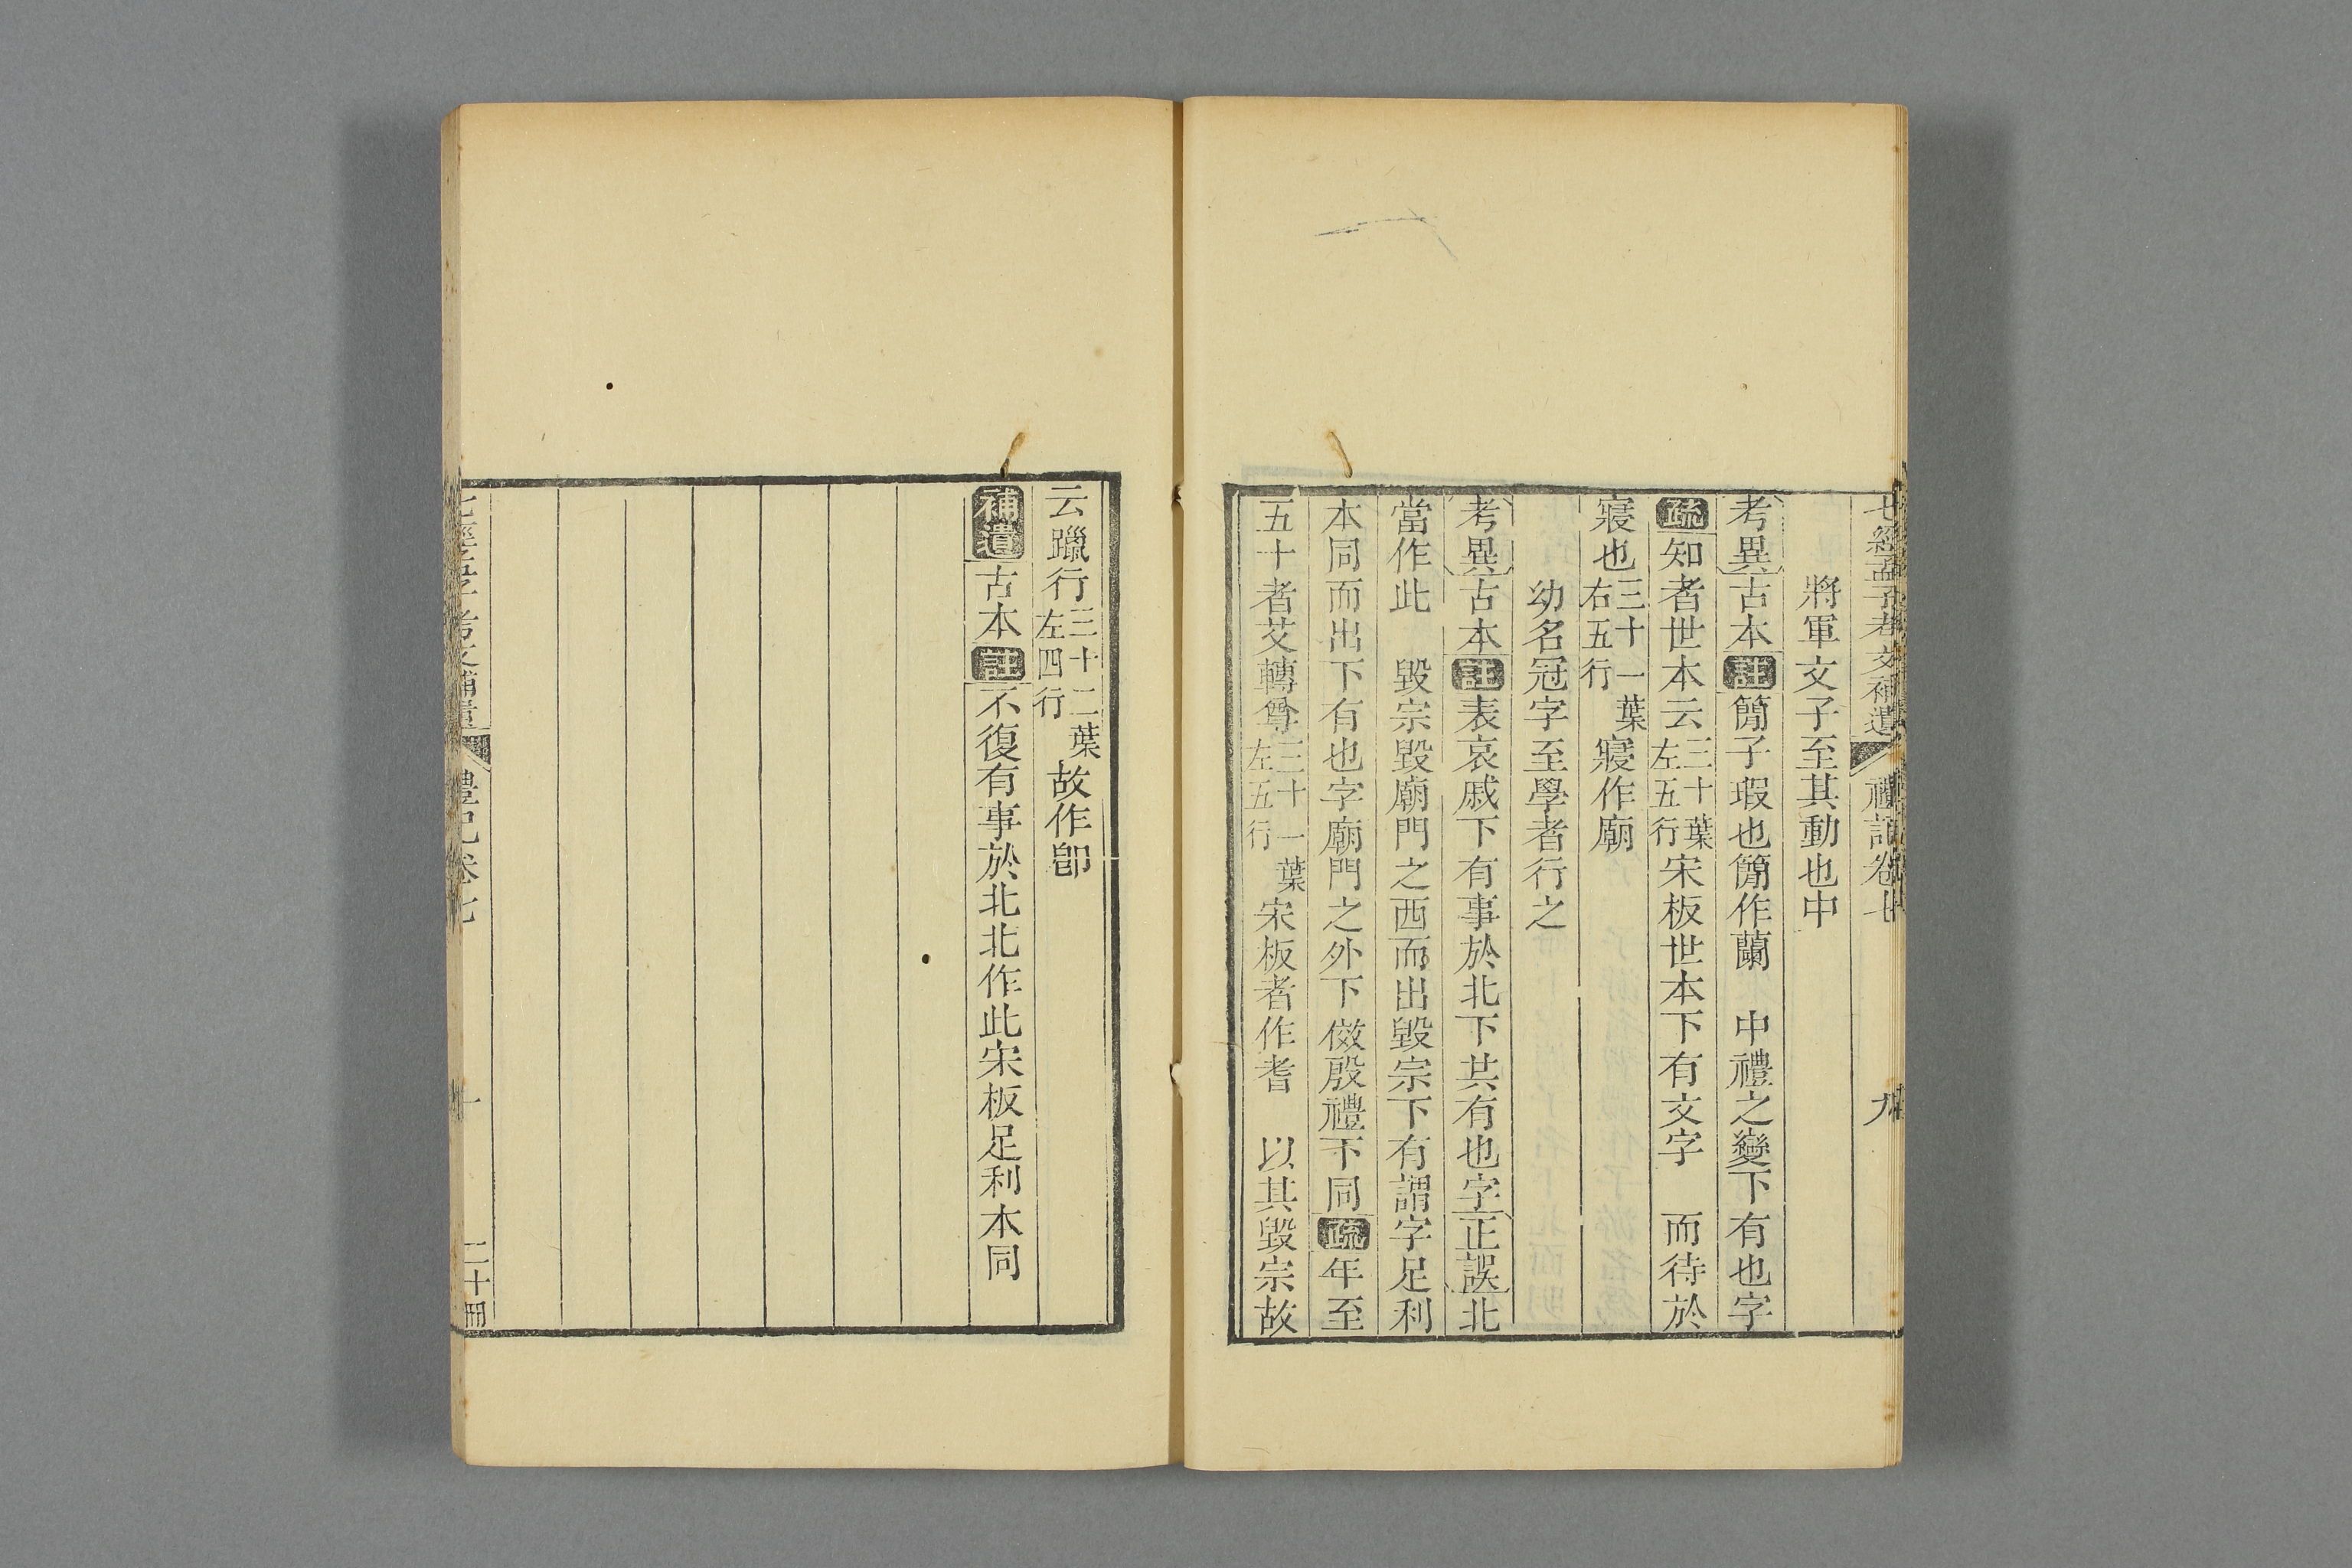 七經孟子考文補遺 禮記卷七 九
將軍文子至其動也中
考異古本註簡子瑕也簡作蘭 中禮之變下有也字
疏知者世本云三十葉左五行宋板世本下有文字 而待於
寢也三十一葉右五行寢作廟
幼名冠字至學者行之
考異古本註表哀戚下有事於北下共有也字正誤北
當作此 毀宗毀廟門之西而出毀宗下有謂字足利
本同而出下有也字廟門之外下傚殷禮下同疏年至
五十者艾轉尊三十一葉左五行宋板者作耆 以其毀宗故
云躐行三十二葉左四行故作卽
補遺古本註不復有事於北北作此宋板足利本同
七經孟子考文補遺 禮記卷七 十 二十冊